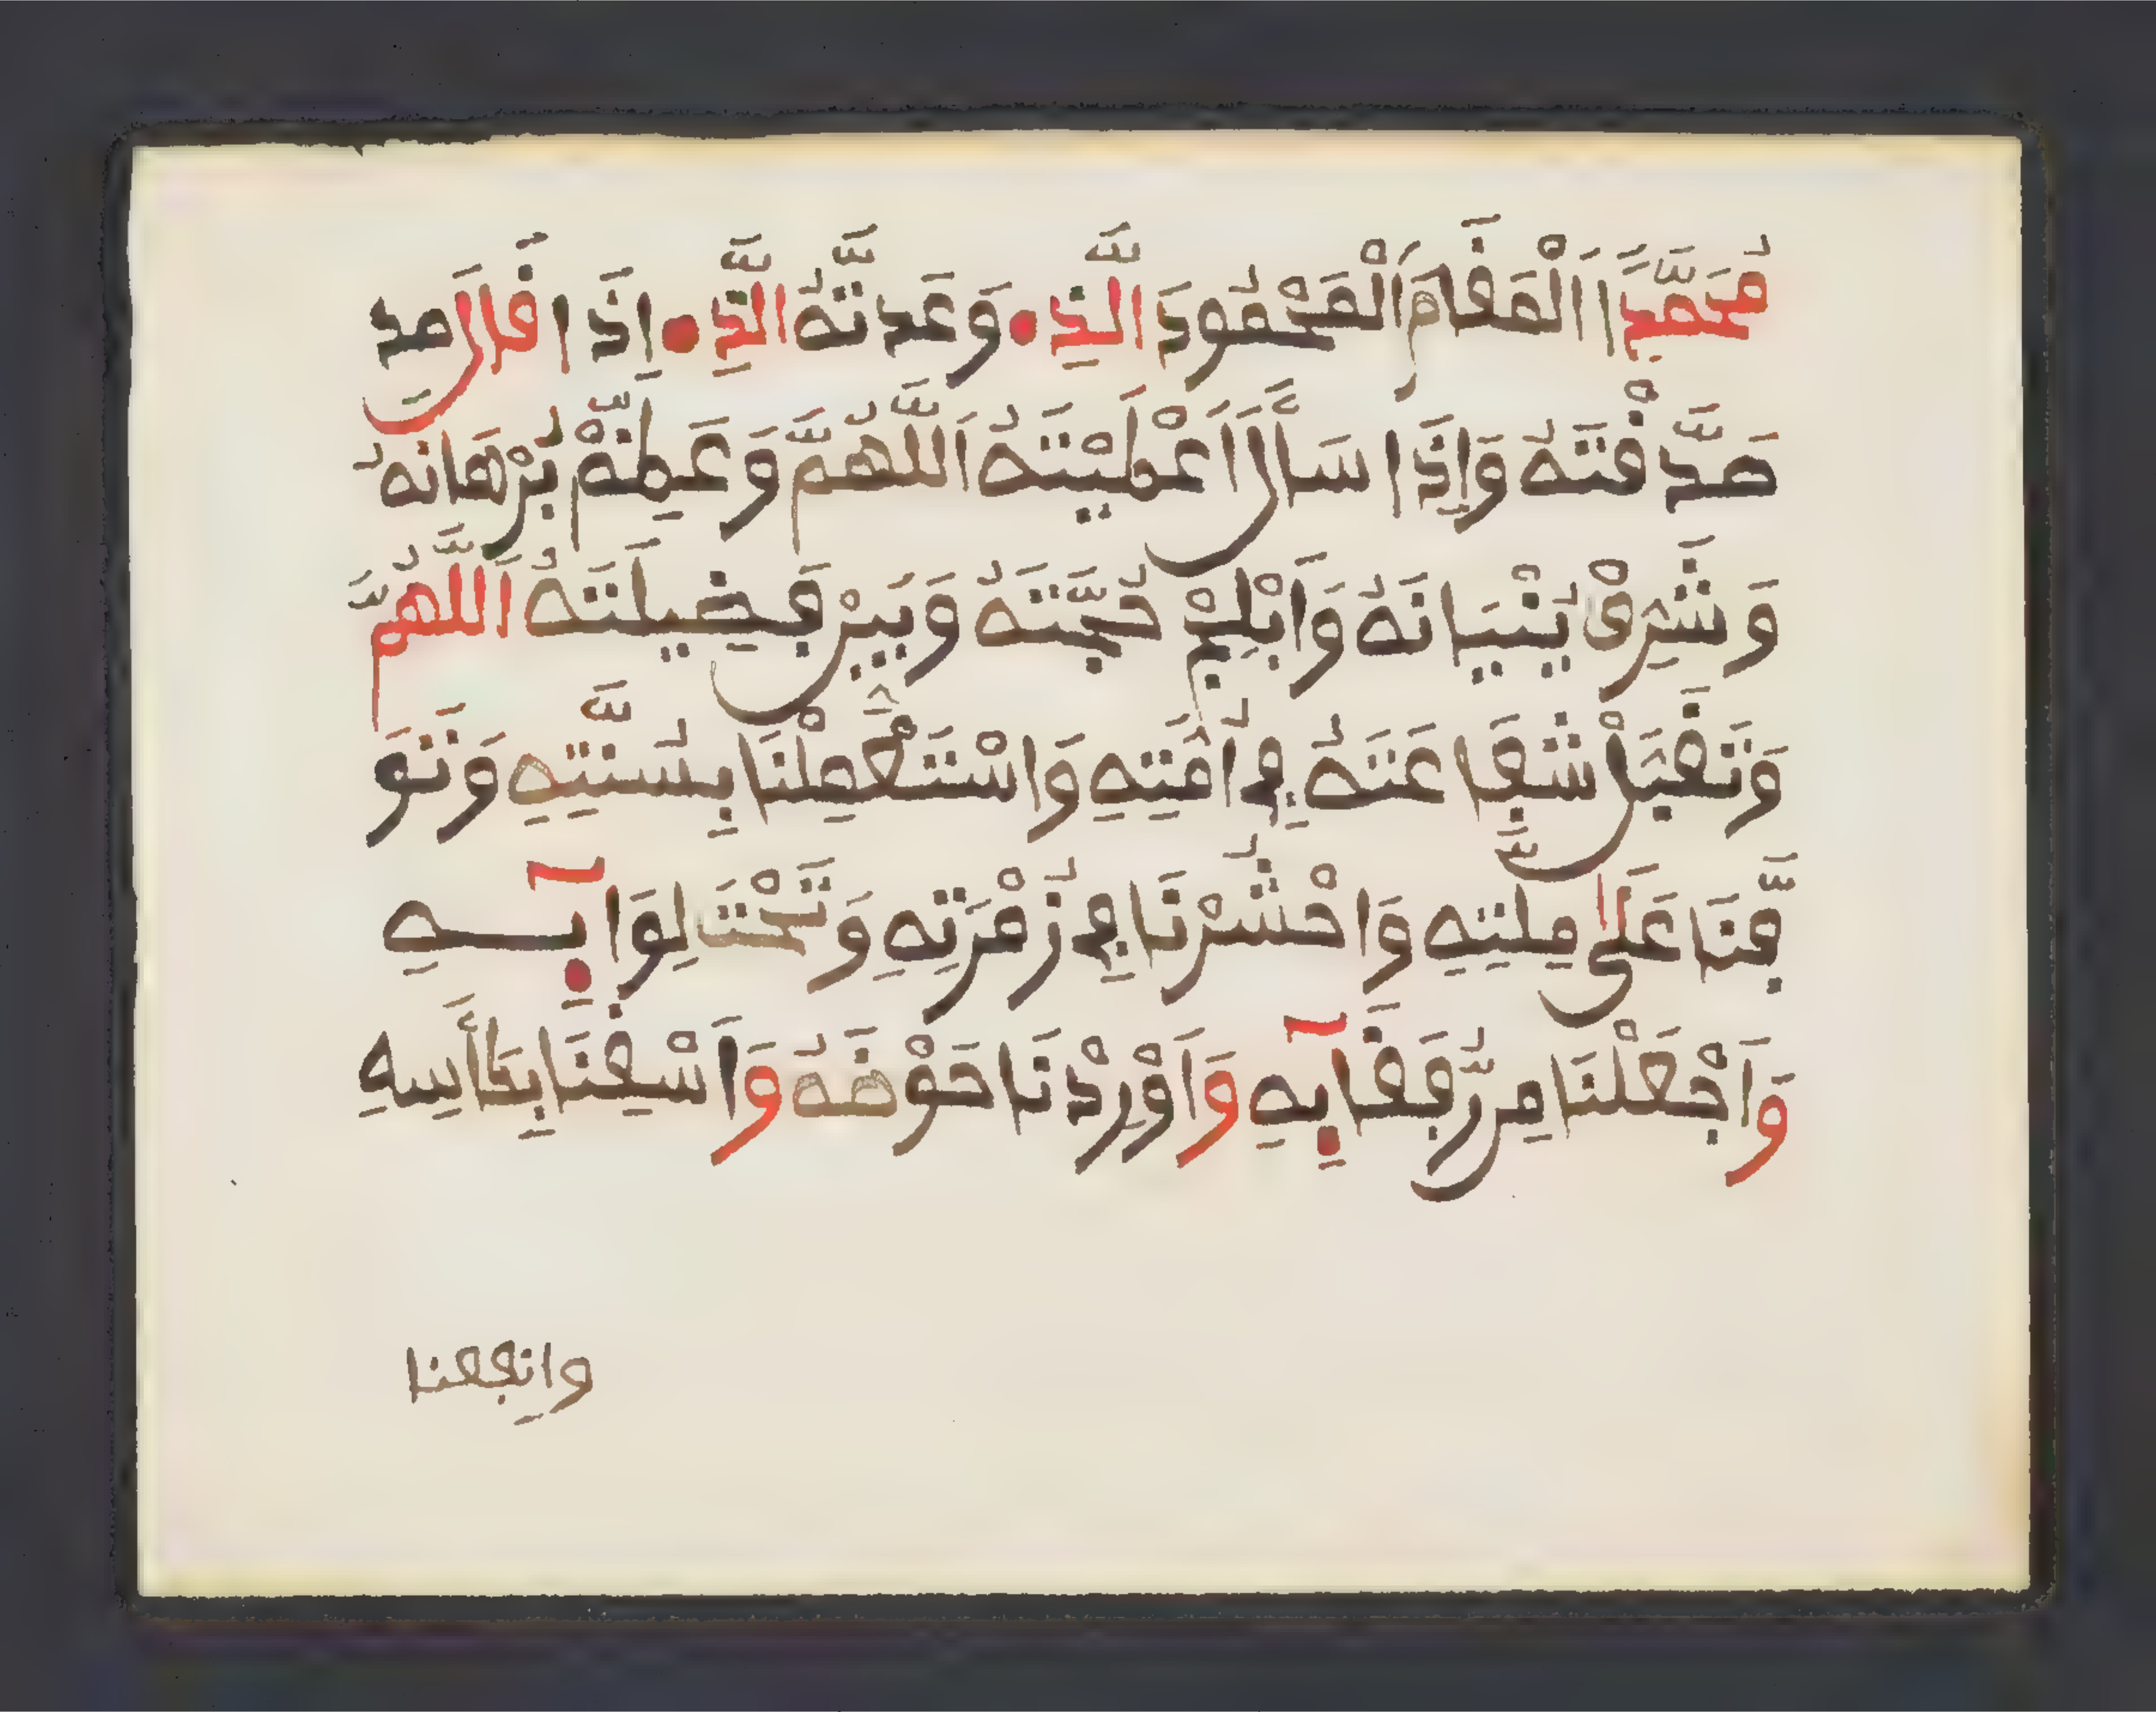 مُحَمَّدًا اَلْمَقَامَ اَلْمَحْمُودَ الَّذِے وَعَدتَّهُ الَّذِے إِذَا قَالَ صد
صَدَّقْتَهُ وَإِذَا سَأَلَ اَعْطَيْتَهُ اَللَّهُمَّ وَعَظِّمْ بُرْهَانَهُ
وَشَرِّفْ بُنْيَانَهُ وَأَبْلِجْ حُجَّتَهُ وَبَيِّنْ فَضِيلَتَهُ اَللَّهُمَّ
وَتَقَبَّلْ شَفَاعَتَهُ فِے أُمَّتِهِ وَاسْتَعْمِلْنَا بِسُنَّتِهِ وَتَوَ
فَّنَا عَلَى مِلَّتِهِ وَاحْشُرْنَا فِے زُمْرَتِهِ وَتَحْتَ لِوَآئِهِ
وَاَجْعَلْنَا مِن رُّفَقَآئِهِ وَأَوْرِدْنَا حَوْضَهُ وَاَسْقِنَا بِكَأْسِهِ
وانفعنا